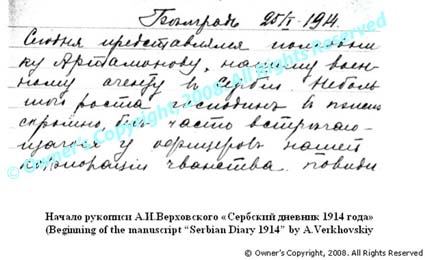 Бѣлградъ 25/I-914.
Сегодня представлялся полковни
ку Артамонову, нашему воен-
ному агенту в Сербіи. Неболь
шого роста господинъ в пенсне
скромно, безъ часто встрѣчаю-
щагося у офицеровъ нашей
корпораціи чванства. повиди
© Owner's Copyright, 2008. All Rights Reserved
Начало рукописи А.И.Верховского «Сербский дневник 1914 года»
(Beginning of the manuscript “Serbian Diary 1914” by A.Verkhovskiy
© Owner's Copyright, 2008. All Rights Reserved